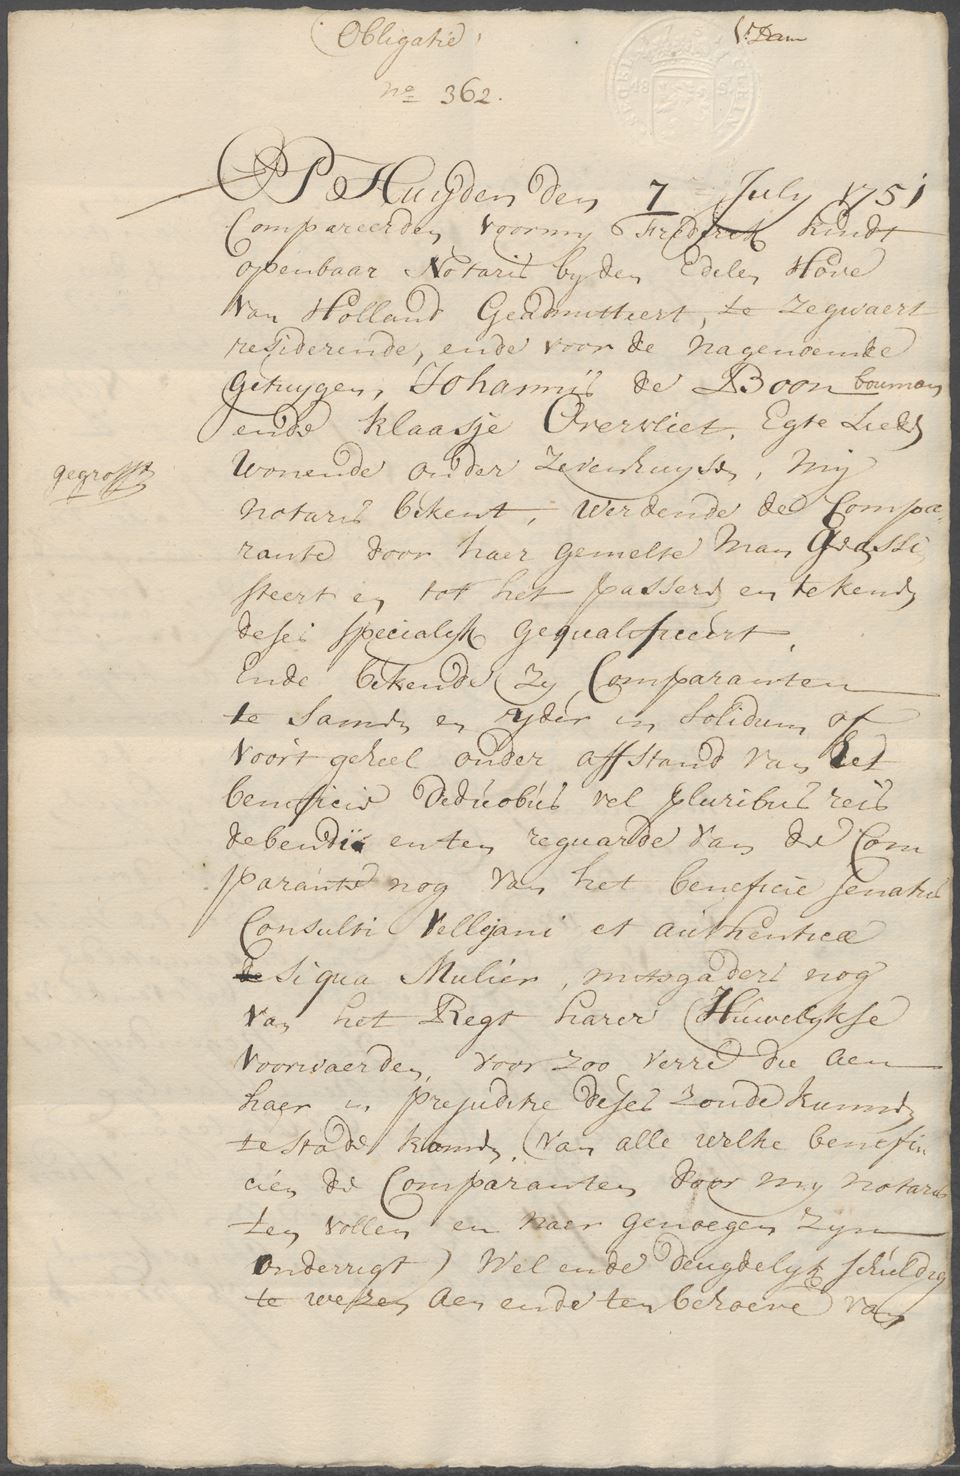 Obligatie
no 362.
Op Huyden den 7 July 1751
Compareerden voor my Frederik Kindt
openbaar Notaris by den Edelen Hove
van Holland Geadmitteert, te Zegwaert
residerende, ende voor de nagenoemde
getuygen, Johannis de Boon bouman
ende Klaasje Overvliet, Egte Lieds
wonende onder Zevenhuysen, my
gegrosst
notaris bekent, werdende de Compa-
rante door haer gemelte Man Geassi
steert en tot het passeren en tekenen
deses specialyk gequalificeert,
Ende bekende Zy Comparanten
te Samen en yder in Solidum of
voort geheel onder afstand van het
beneficie de duobus vel pluribus reis
debendii en ten reguarde van de Com
parante nog van het beneficie senatus
Consulti Vellejani et authenticæ
Si qua Mulier, mitsgaders nog
van het Regt harer Huwelykse
Voorwaerden, voor zoo verre die aen
haer in prejuditie deses Zoude kunnen
te stade komen (van alle welke benefin
cien de Comparanten door my notaris
ten vollen en naer genoegen Zyn
onderrigt) Wel ende deugdelyk schuldig
te wezen Aen ende ten behoeve van